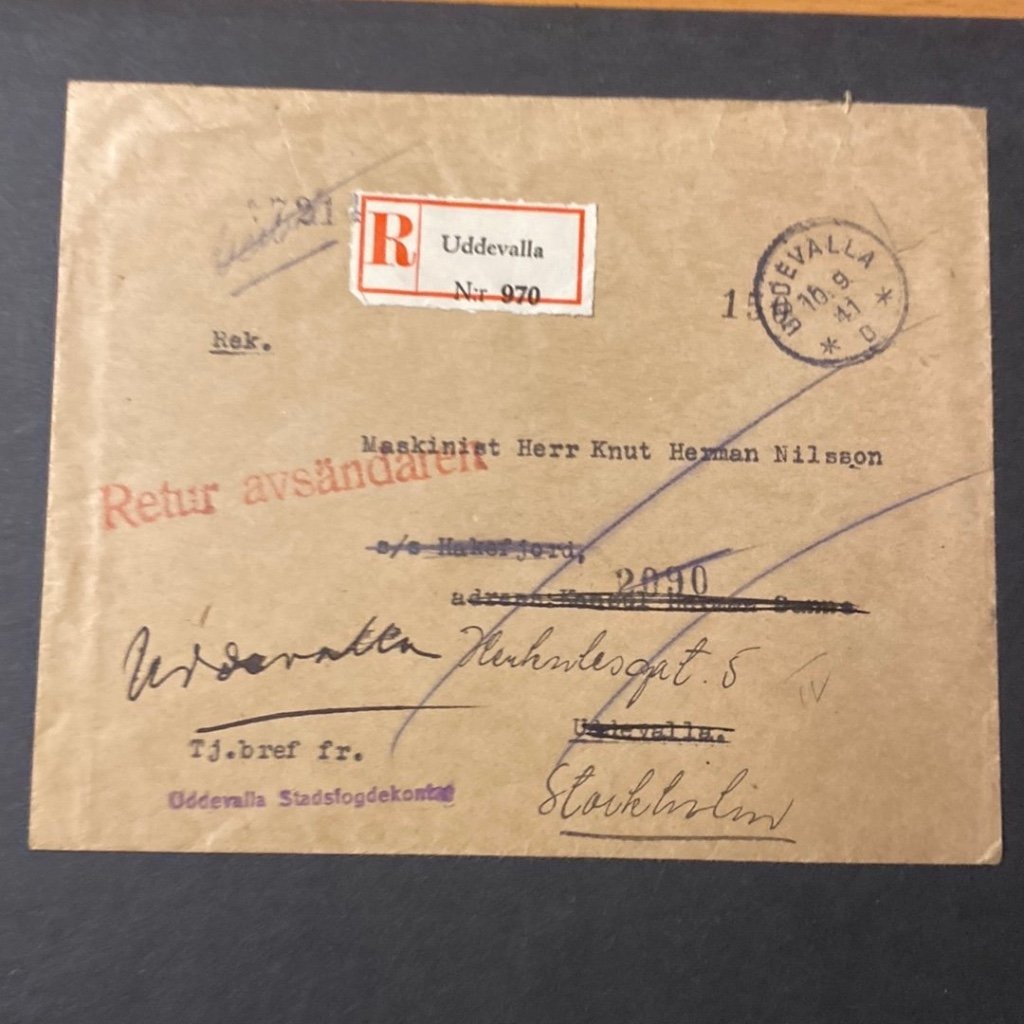 R Uddevalla
N:r 970
UDDEVALLA
16.9
41
* D *
Rek.
Maskinist Herr Knut Herman Nilsson
Retur avsändaren
s/s Hakefjord,
2090
Uddevalla
5
Uddevalla.
Tj.bref fr.
Uddevalla Stadsfogdekontor
Stockholm